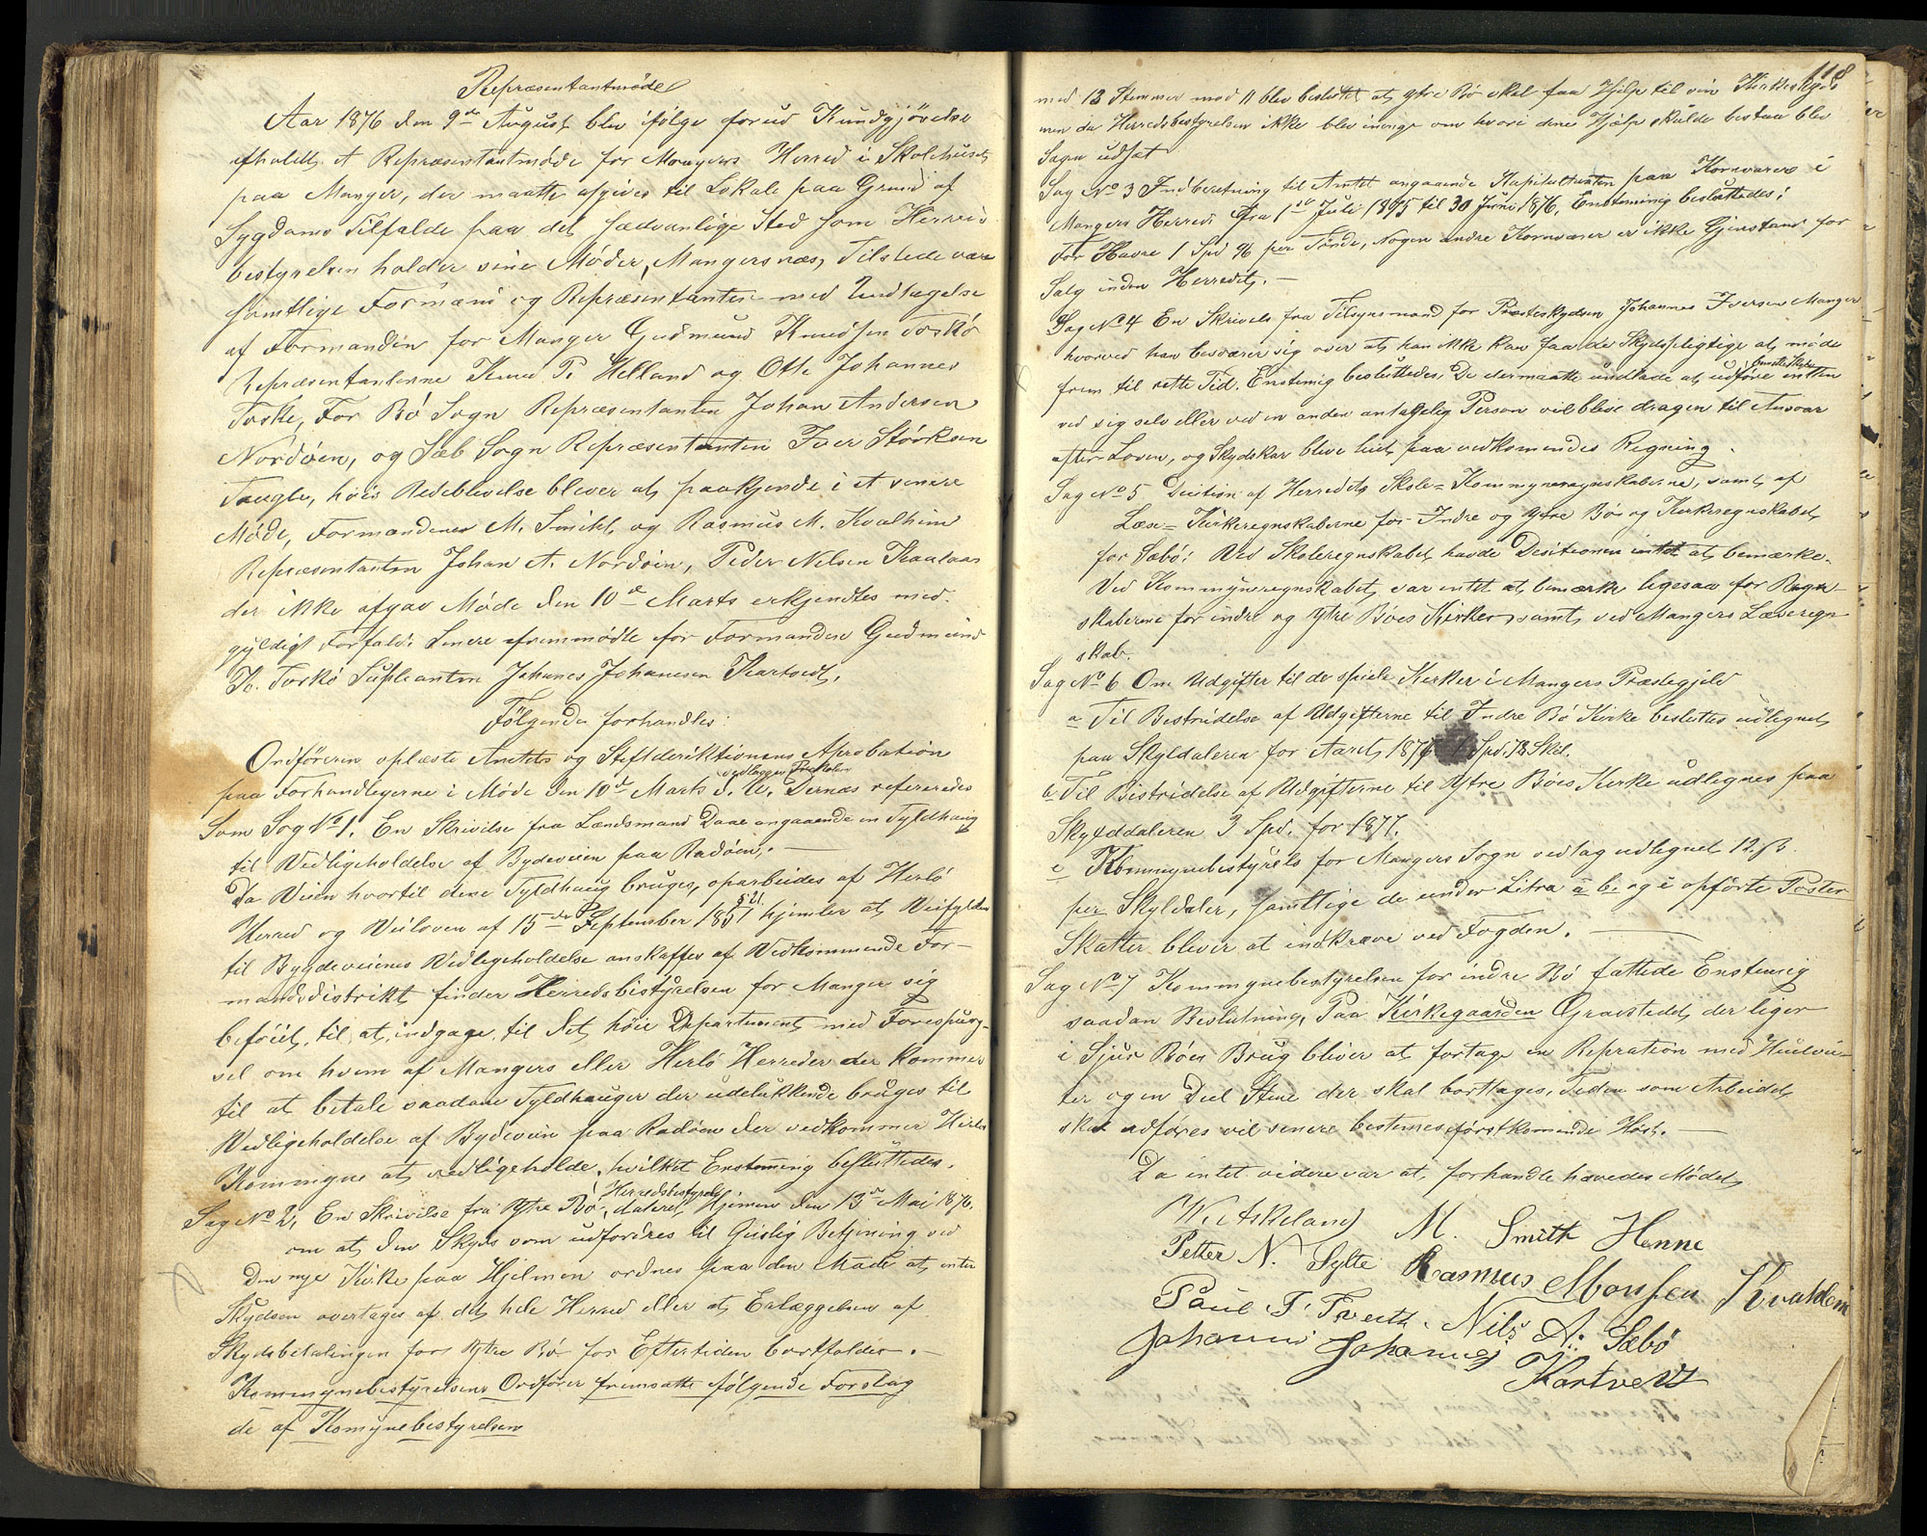 Repræsentantmøde
Aar 1876 den 9de August blev ifølge forud Kundgjørelse
afholdt et Repræsentantmøde for Mangers Herred i Skolehuset
paa Manger, der maatte afgives til Lokale paa Grund af
Sygdoms Tilfælde paa det sædvanlige Sted som Herreds
bestyrelsen holder sine Møder, Mangersnæs, Tilstede vare
samtlige Formænd og Repræsentanter med Undtagelse
af Formanden for Manger Gudmund Knudsen Toskø
Repræsentanterne Knud P. Helland og Otte Johannes
Toske, For Bø Sogn Repræsentanten Johan Andersen
Nordøen, og Sæb Sogn Repræsentanten Iver Størksen
Taugle, hvis Udeblivelse bliver at paakjende i et senere
Møde, Formændenes M. Smith og Rasmus M. Kvalheim
Repræsentanten Johan A. Nordøen, Peder Nelsen Kaalaas
der ikke afgav Møde den 10de Marts erkjendtes med
gyldigt Forfald. Senere fremmødte for Formanden Gudmund
K. Toskø Supleanten Johanes Johanesen Kartvedt.
Følgende forhandles:
Ordføreren oplæste Amtets og Stiftderiktionens Aprobation
vedtagne Protokoler
paa Forhandlegerne i Møde den 10de Marts d. A. Dernæs refereredes
Som Sag No 1. En Skrivelse fra Lændsmand Daae angaaende en Fyldhaug
til Vedligeholdelse af Bydeveien paa Radøen. —
Da Veien hvortil dene Fyldhaug bruges, oparbeides af Herlø
§ 21.
Herred og Veiloven af 15de September 1851 hjemler at Veifylden
til Bygdeveienes Vedligeholdelse anskaffes af Vedkommende For-
mandsdistrikt finder Herredsbistyrelsen for Manger sig
beføiet til at indgaae til det høie Departement med Forespørg-
sel om hvem af Mangers eller Herlø Herreder der kommer
til at betale saadane Fyldhauger der udelukkende bruges til
Vedligeholdelse af Bydeveien paa Radøen der vedkommer Herlø
Kommune at vedligeholde, hvilket Enstemig besluttedes.
Herredsbestyrels
Sag No 2, En Skrivelse fra Ytre Bø, dateret Hjelmen den 13de Mai 1876.
om at den Skyds som udfordres til Geislig Betjening ved
Den nye Kirke paa Hjelmen ordnes paa den Maade at enten
Skydsen overtages af det hele Herred eller at Erlæggelsen af
Skydsbetalingen for Ytre Bø for Eftertiden bortfalder. —
Kommynebestyrelsens Ordfører fremsatte følgende Forslag
de af Komynebestyrelsen
118
med 13 Stemmer mod 11 blev besluttet at ytre Bø skal faa Hjelp til sin Kirkeskyds
men da Herredsbestyrelsen ikke blev inenge om hvori dene Hjælp skulde bestaa blev
Sagen udsat
Sag No 3 Indberetning til Amtet angaaende Kapitultaxten paa Kornvarer i
Mangers Herred. fra 1ste Juli 1875 til 30 Juni 1876, Enstemmig besluttedes:
For Havre 1 Spd per Tønde, Nogen andre Kornvarer er ikke Gjenstand for
Salg inden Herredet. —
Sag No 4 En Skrivels fra Tilsynsmand for Præsteskydsen Johannes Iversen Manger
hvorved han besværer sig over at han ikke kan faa de Skydspligtige at møde
frem til rette Tid. Enstemig besluttedes, De der maatte undlade at udføre enten
ved sig selv eller ved en anden antagelig Person vil blive dragen til Ansvar
efter Loven, og Skydskar blive leiet paa vedkomendes Regning.
Sag No 5 Decition af Herredets Skole= Kommyneregnskaberne, samt af
Læse= Kirkeregnskaberne for Indre og ytre Bø og Kirkeregnskabet
for Sæbø: Ved Skoleregnskabet havde Desitionen intet at bemærke.
Ved Kommyneregnskabet var intet at bemærke ligesaa for Regn-
skaberne for indre og ytre Bøes Kirker samt ved Mangers Læseregn
skab.
Sag No 6. Om Udgifter til de spiele Kirker i Mangers Præstegjeld
a Til Bestridelse af Udgifterne til Indre Bø Kirke besluttes udlignet
paa Skyldaleren for Aaret 1877 1 Spd. 78 Skil.
b Til Bistridelse af Udgifterne til Ytre Bøes Kirke udlignes paa
Skylddaleren 3 Spd. for 1877.
c Kommunebestyrels for Mangers Sogn vedtog udlignet 12 ß.
per Skyldaler, samtlige de under Litra a b. og c opførte Poster
Skatter blever at indkræve ved Fogden. —
Sag No 7 Kommynebestyrelsen for indre Bø fattede Enstemig
saadan Beslutning, Paa Kirkegaarden Gravstedet der liger
i Sjur Bøes Brug bliver at fortage en Repration med Huulvei-
ter og en Deel Stene der skal borttages, Tiden som Arbeidet
skal udføres vil senere bestemes førstkomende Høst. —
Da intet videre var at forhandle hævedes Mødet
W. Askeland M. Smith Henne
Petter N. Sylte Rasmus Monsen Kvalheim
Paul T. Tveith. Nils A. Sæbø
Johannes Johannes Kartvedt